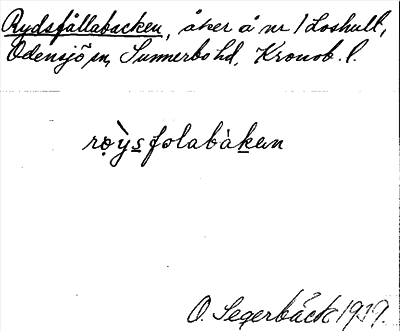 Rydsfållabacken, åker å nr 1 Loshult,
Odensjö sn, Sunnerbo hd, Kronob. l.
rọỳs̲folabàk̲ən
O. Segerbäck 1919.